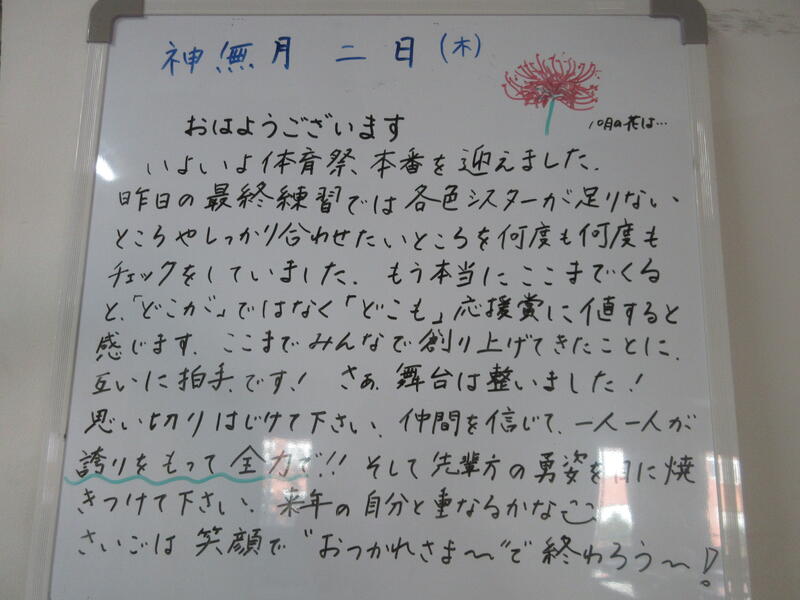 神無月 二日(木)
10月の花は…
おはようございます
いよいよ体育祭、本番を迎えました.
昨日の最終練習では各色シスターが足りない
ところやしっかり合わせたいところを何度も何度も
チェックをしていました. もう本当にここまでくる
と、「どこが」ではなく「どこも」応援賞に値すると
感じます. ここまでみんなで創り上げてきたことに、
互いに拍手です! さぁ、舞台は整いました!
思い切りはじけて下さい. 仲間を信じて、一人一人が
誇りをもって全力で!! そして先輩方の勇姿を目に焼
きつけて下さい. 来年の自分と重なるかな
さいごは笑顔で"おつかれさま〜"で終わろう〜!